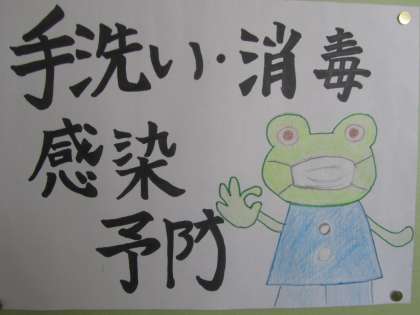 手洗い・消毒
感染
予防